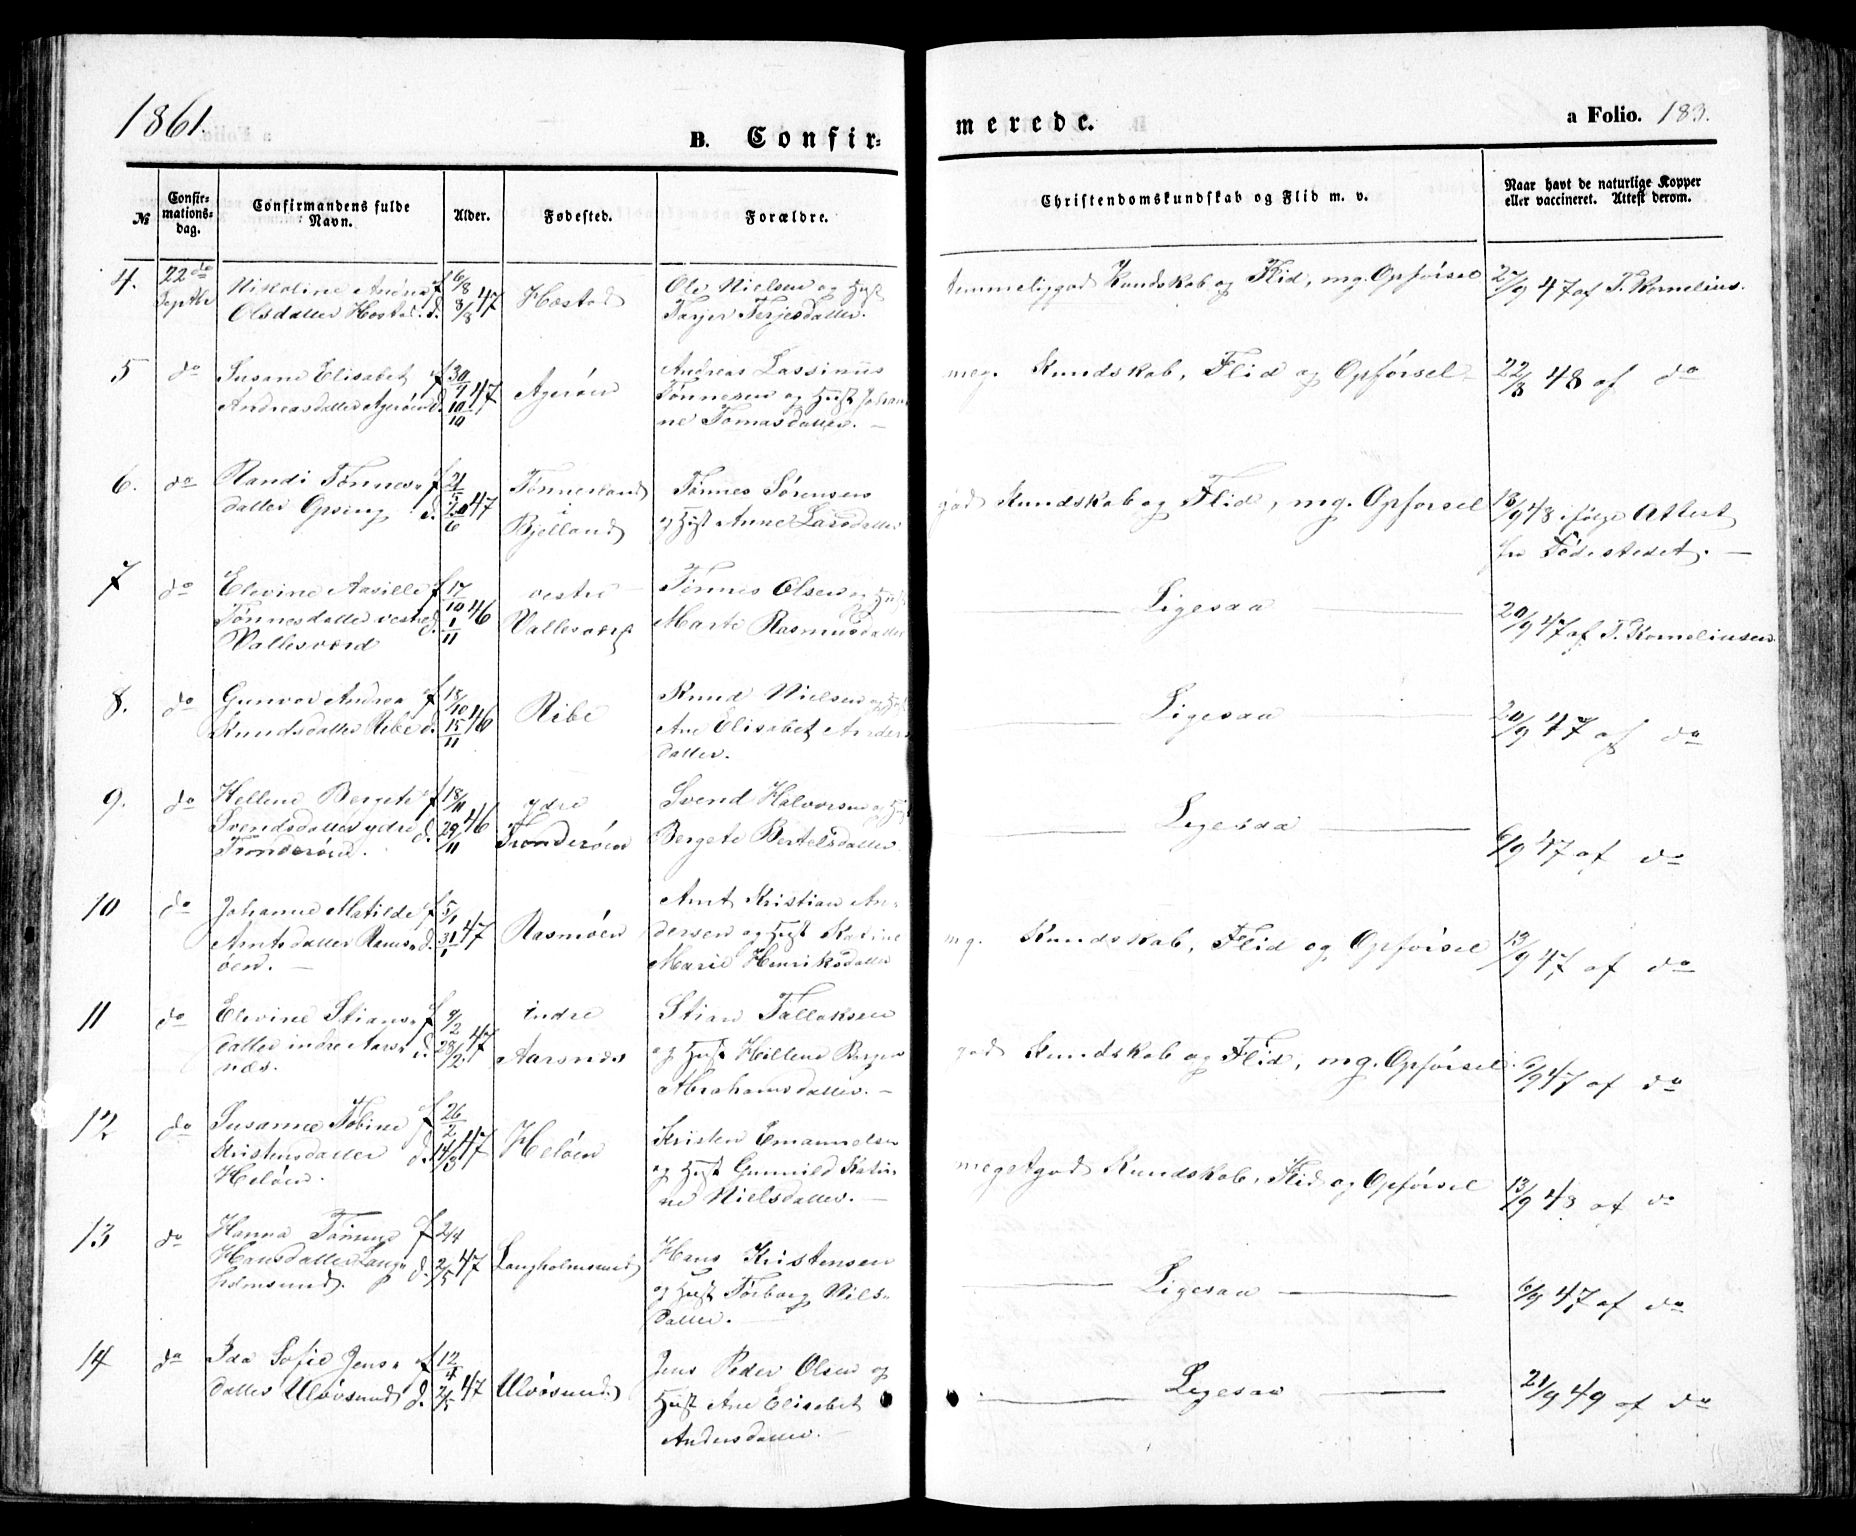 1861.
B. Confir-
merede.
a Folio. 183.
№
Confir-
mations-
dag.
Confirmandens fulde
Navn.
Alder.
Fødested.
Forældre.
Christendomskundskab og Flid m. v.
Naar havt de naturlige Kopper
eller vaccineret. Attest derom.
4.
22 de
Septbr
Nikoline Andrea
Olsdatter Hæstad
f. 6/8 47
d. 8/8
Hæstad
Ole Nielsen og Hust
Tarjer Terjesdatter.
temmelig god Kundskab og Flid, mg. Opførsel
27/9 47 af T. Kornelius.
5
do
Susane Elisabet
Andreasdatter Ageröen
f. 30/9 47
d. 10/10
Ageröen
Andreas Lassinus
Tönnesen og Hust Johan
ne Tomasdatter. —
meg. Kundskab, Flid og Opførsel
22/8 48 af do
6.
do
Randi Tönnes-
datter Öpsing
f. 21/5 47
d. 20/6
Tönnesland
i
Bjelland
Tönnes Sörensen
og Hust Anne Larsdatter
god Kundskab og Flid, mg. Opförsel
18/9 48 ifølge Attest
fra Födestedet. —
7
do
Elevine Aasille
Tönnesdatter vestre
Vallesværd
f. 17/10 46
d. 1/11
vestre
Vallesværd
Tönnes Olsen og Hust
Marte Rasmusdatter
Ligesaa
20/9 47 af T. Korneliusen
8.
do
Gunvor Andrea
Knudsdatter Ribe
f. 18/10 46
d. 15/11
Ribe
Knud Nielsen og Hust
Ane Elisabet Anders
datter.
Ligesaa
20/9 47 af do
9.
do
Hellene Bergete
Svendsdatter ydre
Tronderöen.
f. 18/11 46
d. 29/11
ydre
Tronderöen
Svend Halvorsen og Hust
Bergete Bertelsdatter.
Ligesaa
6/9 47 af do
10
do
Johanne Matilde
Arntsdatter Rams-
öen. —
f. 5/1 47
d. 31/1
Rasmöen
Arnt Kristian An-
dersen og Hust Katine
Marie Henriksdatter
mg. Kundskab, Flid og Opførsel
13/9 47 af do
11
do
Elevine Stians-
datter indre Aars-
næs.
f. 9/2 47
d. 28/2
indre
Aarsnæs
Stian Tallaksen
og Hust Hellene Berges
Abrahamsdatter. —
god Kundskab og Flid, mg. Opførsel
6/9 47 af do
12
do
Susanne Tobine
Kristensdatter
Helöen.
f. 26/2 47
d. 14/3
Helöen
Kristen Emanuelsen
og Hust Gunnild Katri
ne Nielsdatter. —
meget god Kundskab, Flid og Opførsel
13/9 48 af do
13
do
Hanna Tomine
Hansdatter Lang-
holmsund.
f. 2/4
d. 2/5 47
Langholmsund
Hans Kristensen
og Hust Torborg Nils-
datter. —
Ligesaa
6/9 47 af do
14
do
Ida Sofie Jens-
datter Ulvösund
f. 12/4 47
d. 2/5
Ulvösund
Jens Peder Olsen og
Hust Ane Elisabet
Andersdatter. —
Ligesaa
21/9 49 af do